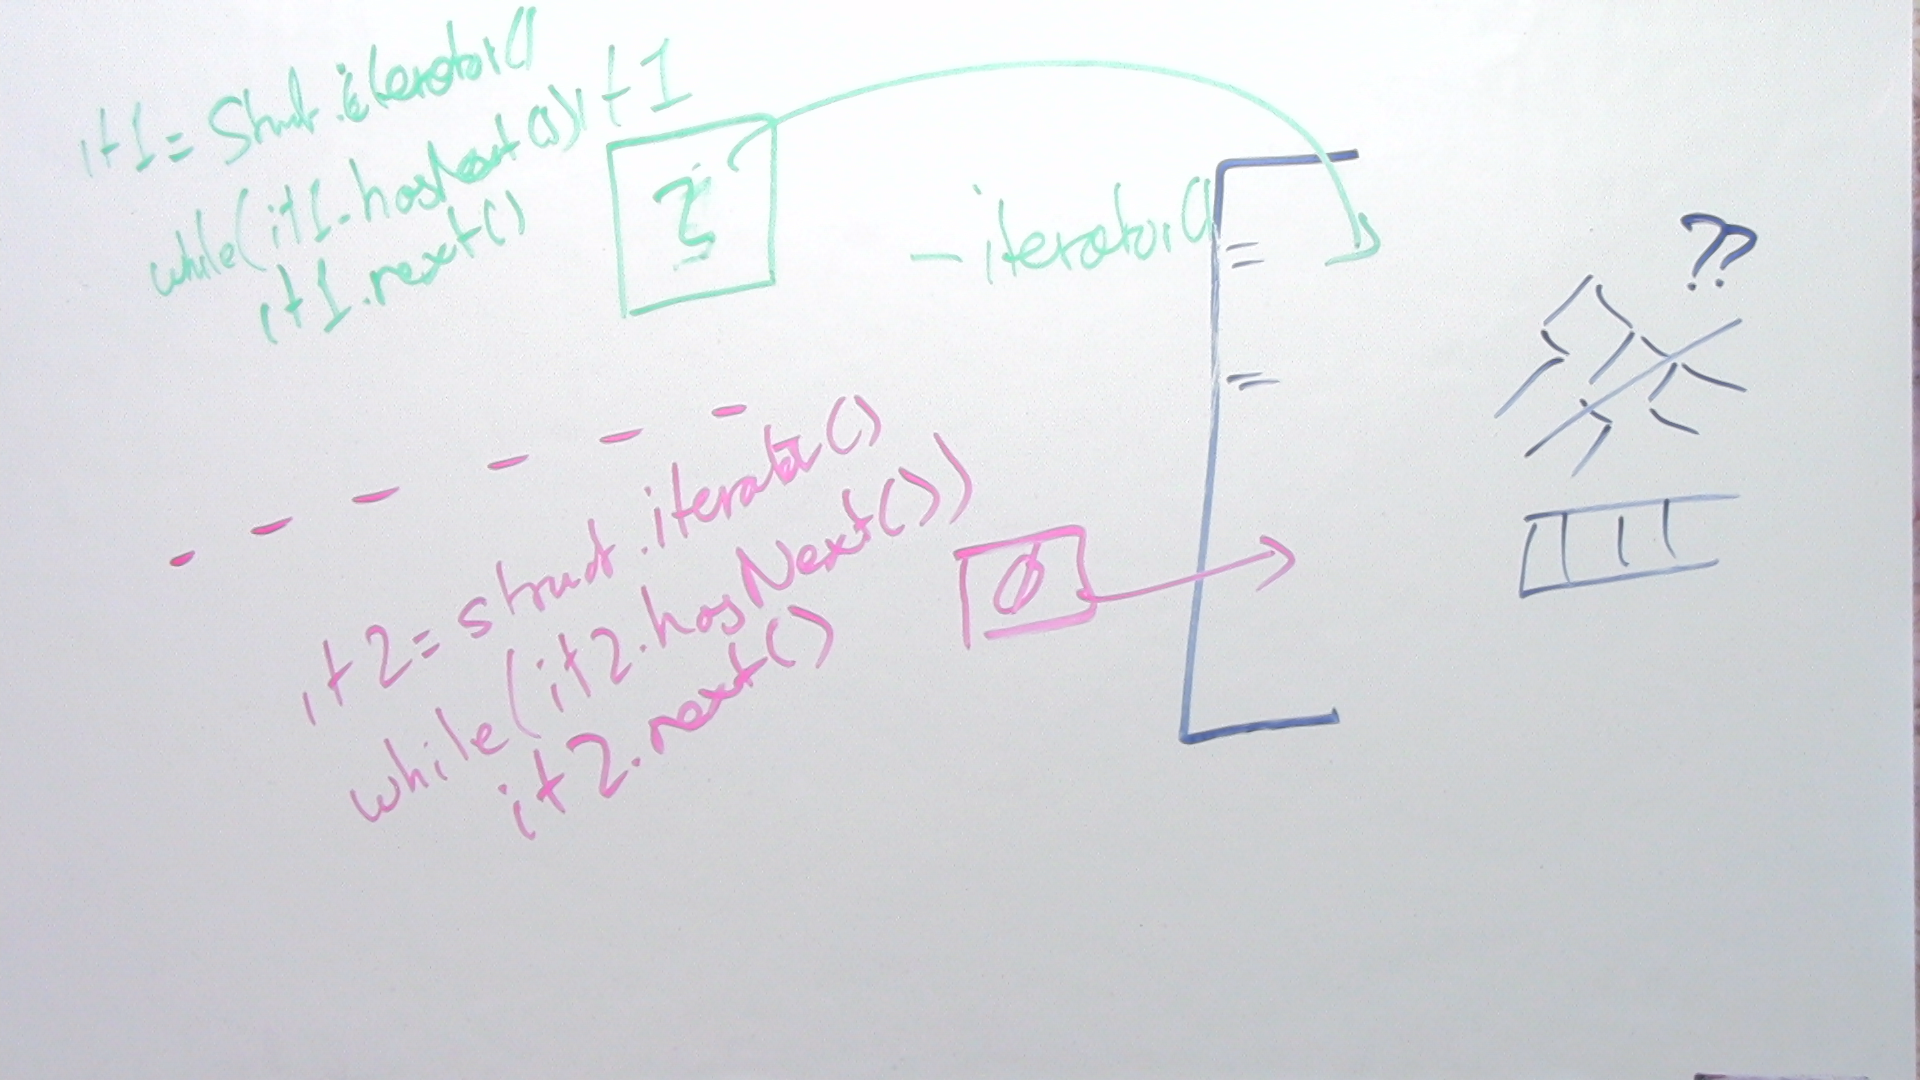 it1 = Struct.iterator()
while(it1.hasNext())
it1.next()
it1
- iterator()
??
it2 = struct.iterator()
while(it2.hasNext())
it2.next()
0